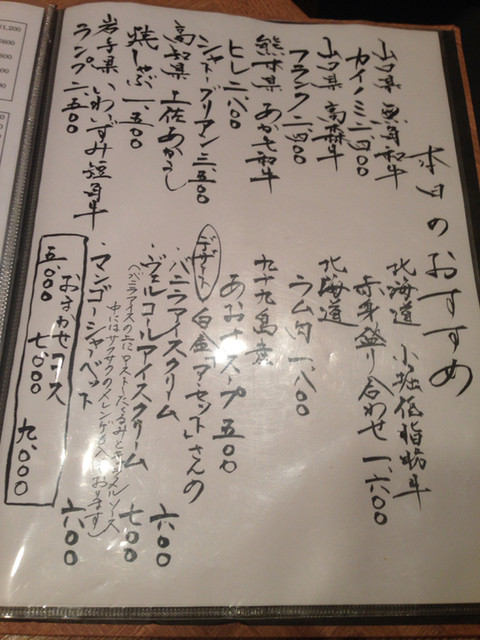 本日のおすすめ
山口県 無角和牛
カイノミ 二、四〇〇
山口県 高森牛
フランク 二、四〇〇
熊本県 あか毛和牛
ヒレ 二、八〇〇
シャトーブリアン 三、五〇〇
高知県 土佐あかうし
焼しゃぶ 一、五〇〇
岩手県 いわいずみ短角牛
ランプ 二、五〇〇
北海道 小堀低脂肪牛
赤身盛り合わせ 一、六〇〇
北海道
ラム肉 一、八〇〇
九十九島産
あおさスープ 五〇〇
デザート 白金「アーセット」さんの
・バニラアイスクリーム 六〇〇
・ヴェルコールアイスクリーム 七〇〇
(バニラアイスの上にローストしたくるみとキャラメルソース
中にはサクサクのメレンゲも入っております)
・マンゴーシャーベット 六〇〇
おまかせコース
五、〇〇〇 七、〇〇〇 九、〇〇〇
一,200